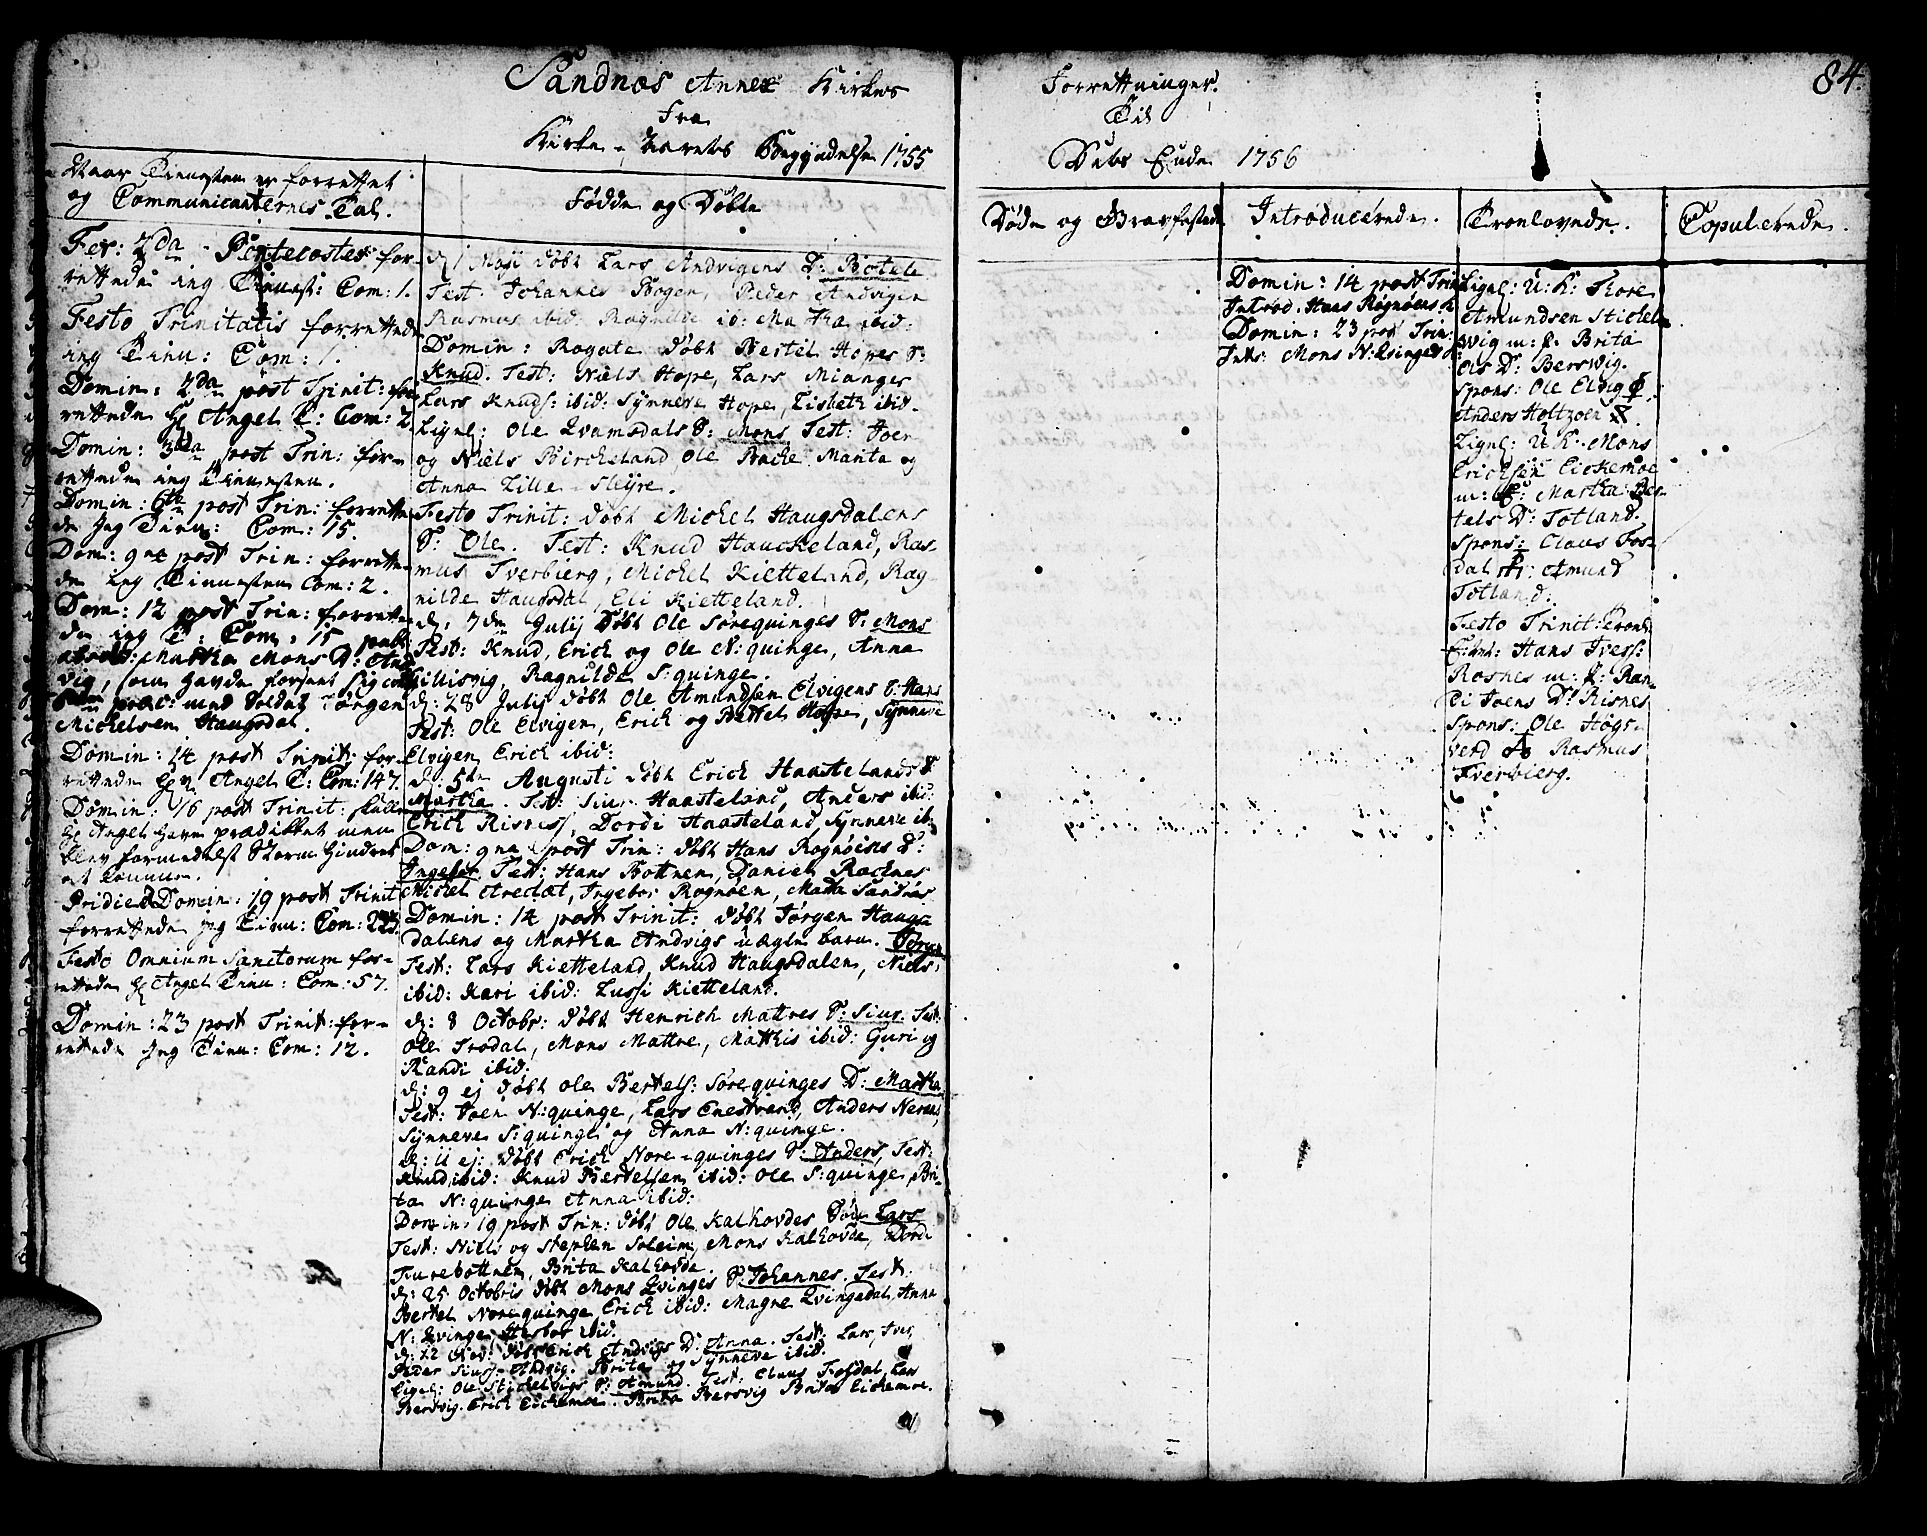 Sandnæs Annex Kirkes
Fra
Kirke-Aarets Begyndelse 1755
Forrettninger.
Til
Dets Ende 1756
84.
Naar Tienesten er forrettet
og Communicanternes Tal.
Fødde og Døbte
Døde og Gravfestede
Introducerede.
Troelovede.
Copulerede.
Fer: 2da Pentecostes for-
rettede ieg Tienest: Com: 1.
Festo Trinitatis forrettede
ieg Tien: Com: 1.
Domin: 2da post Trinit: for-
rettede Hr Angel T: Com: 2.
Domin: 3tia post Trin: for-
rettede ieg Tienesten.
Domin: 6ta post Trin: forrette-
de Jeg Tien: Com: 15.
Dom: 9na post Trin: forrette-
de ieg Tienesten Com: 2.
Dom: 12 post Trin: forrette-
de ieg T: Com: 15 publ:
absolv: Martha Mons D: And-
vig, som havde forseet sig
med Soldat Jørgen
Michelsen Haugsdal.
Domin: 14 post Trinit: for-
rettede Hr Angel T: Com: 147.
Domin: 16 post Trinit: skulle
Hr Angel have prædikket men
blev formedelst Storm hindret
at komme.
Pridie Domin: 19 post Trinit
forrettede jeg Tien: Com: 223.
Festo Omnium Sanctorum for-
rettede Hr Angel Tien: Com: 57.
Domin: 23 post Trinit: for-
rettede Jeg Tien: Com: 12.
d: 1 Maji døbt Lars Andvigens D: Botele
Test. Johannes Bogen, Peder Andvigen
Rasmus ibid: Ragnilde ib: Martha ibid:
Domin: Rogate døbt Nestel Hopes S:
Knud. Test: Niels Hope, Lars Mianger
Lars Knuds: ibid: Synneve Hope, Lisbeth ibid.
Ligel: Ole Qvamsdals S: Mons Test: Joen
og Niels Birckeland, Ole Bache Marita og
Anna Lille-Sleyre.
Festo Trinit: døbt Michel Haugsdalens
S: Ole. Test: Knud Hauckeland, Ras-
mus Tverbierg, Michel Kietteland, Rag-
nilde Haugsdal, Eli Kietteland.
d: 7de Julij Døbt Ole Sørequinges S: Mons
Test: Knud, Erich og Ole N:quinge, Anna
Ragnilde S:quinge.
d: 28 Julij døbt Ole Amundsen Elvigens S: Hans
Test: Ole Elvigen, Erich og Bertel Hope, Synneve
Elvigen Erich ibid:
d: 5te Augusti døbt Erich Haastelands D
Martha. Test: Siur Haasteland, Anders ibid:
Erich Risness, Dordi Haasteland, Synneve ib:
Dom: 9na post Trin: døbt Hans Rognøens D:
Ingebor Test: Hans Bottnem, Daniel Racknes
Michel Aredal, Ingebor Rognøen, Madn Sandnæs
Domin: 14 post Trinit: døbt Jørgen Haugs-
dalens og Martha Andvigs uægte barn. Jørgen
Test: Lars Kietteland, Knud Haugsdalen, Niels
ibid: Kari ibid: Lussi Kietteland.
d: 8 Octobr: døbt Henrich Mattres S: Siur. Test:
Ole Trodal, Mons Mattre, Matthis ibid: Guri og
Randi ibid:
d: 9 ej døbt Ole Bertels: Sørequinges D: Martha
Test: Joen N:quinge, Lars Enestrand, Anders
Synneve S:quinge og Anna N:quinge.
d: 11 ej: Døbt Erich Nore-quinges S: Anders, Test:
Knud ibid: Knud Bertelsen ibid: Ole S:quinge, Bri-
ta N:quinge Anna ibid:
Domin: 19 post Trin: døbt Ole Kalhovdes Søn Lars
Test: Niels og Stephen Soleim, Mons Kalhovde, Dordi
Furebottnen, Brita Kalhovde.
d: 25 Octobris døbt Mons Qvinges S: Johannes. Test:
Bertel Norequinge Erich ibid: Magne Qvingedal, Anna
N: Qvinge, Herbor ibid.
d: 22 Nov: døbt Erich Andvigs D: Anna. Test: Lars, Iver,
Peder Siurs: Andvig. Brita og Synneve ibid.
Ligel: Ole Stichelvigs S: Amund. Test: Claus Fosdal, Lars
Bersvig. Erich Eickemoe. Brita Bersvig Brita Eickemoe.
Domin: 14 post Trin
Introd. Hans Rognøens K
Domin: 23 post Trin:
Intr: Mons N: Qvinges K:
Ligel: U: K: Tore
Amundsen Stichel-
vig m: P: Brita
Ols D: Berswig.
Spons: Ole Elvig
Anders Holtzoen
Ligel: U: K: Mons
Erichsen Eickemoe
m: P: Martha Ber-
tels D: Totland.
Spons: Claus Fos-
dal Amund
Totland.
Festo Trinit: trol:
Hans Ivers:
Rosnes m: P: Ran-
di Joens D: Risnes
Spons: Ole Høgs-
verd Rasmus
Tverbierg.